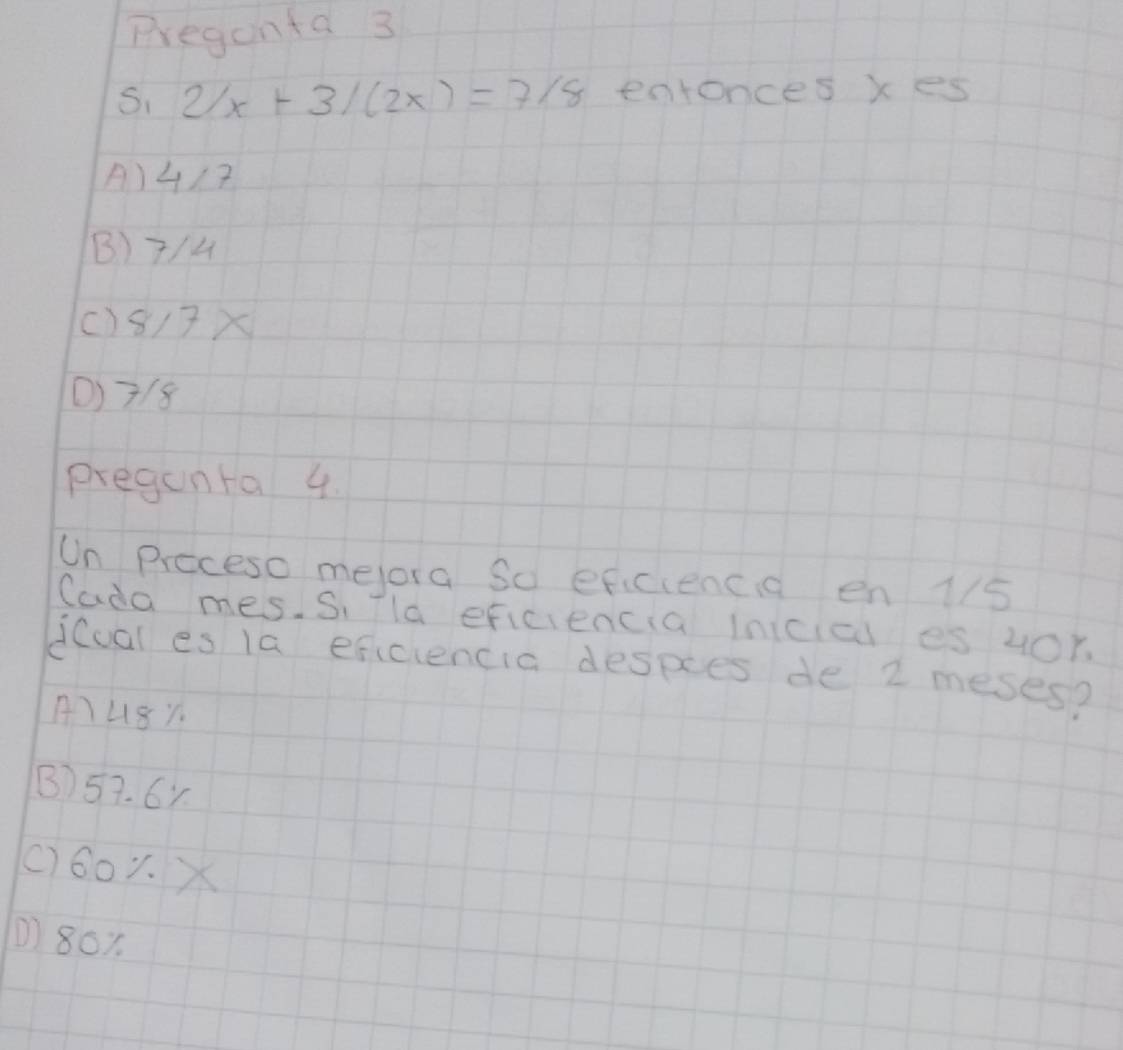 Pregunta 3
Si 2/x + 3/(2x) = 7/8 entonces x es
A) 4/7
B) 7/4
C) 8/7 X
D) 7/8
pregunta 4.
Un Proceso mejora su eficiencia en 1/5
Cada mes. Si la eficiencia inicial es 40%.
¿Cual es la eficiencia despues de 2 meses?
A) 48%
B) 57.6%
C) 60% X
D) 80%